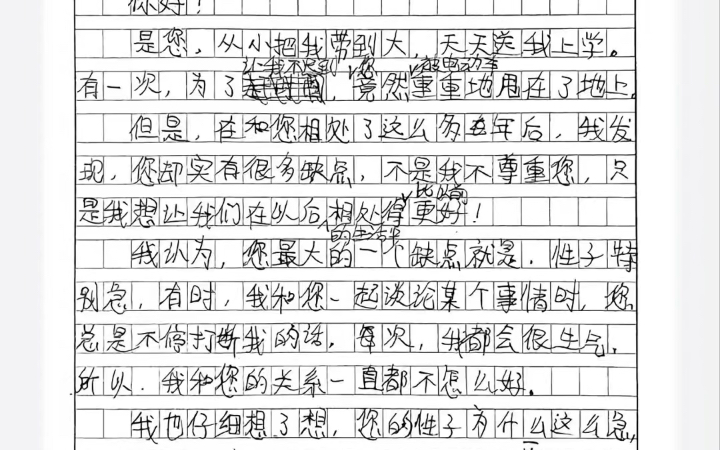 你好！
是您，从小把我带到大，天天送我上学。
让我不迟到 您 被电动车
有一次，为了，竟然重重地甩在了地上。
但是，在和您相处了这么多年后，我发
现，您却实有很多缺点，不是我不尊重您，只
比以前
是我想让我们在以后相处得更好！
的生活中
我认为，您最大的一个缺点就是，性子特
别急，有时，我和您一起谈论某个事情时，您
总是不停打断我的话，每次，我都会很生气，
所以，我和您的关系一直都不怎么好。
我也仔细想了想，您的性子为什么这么急，